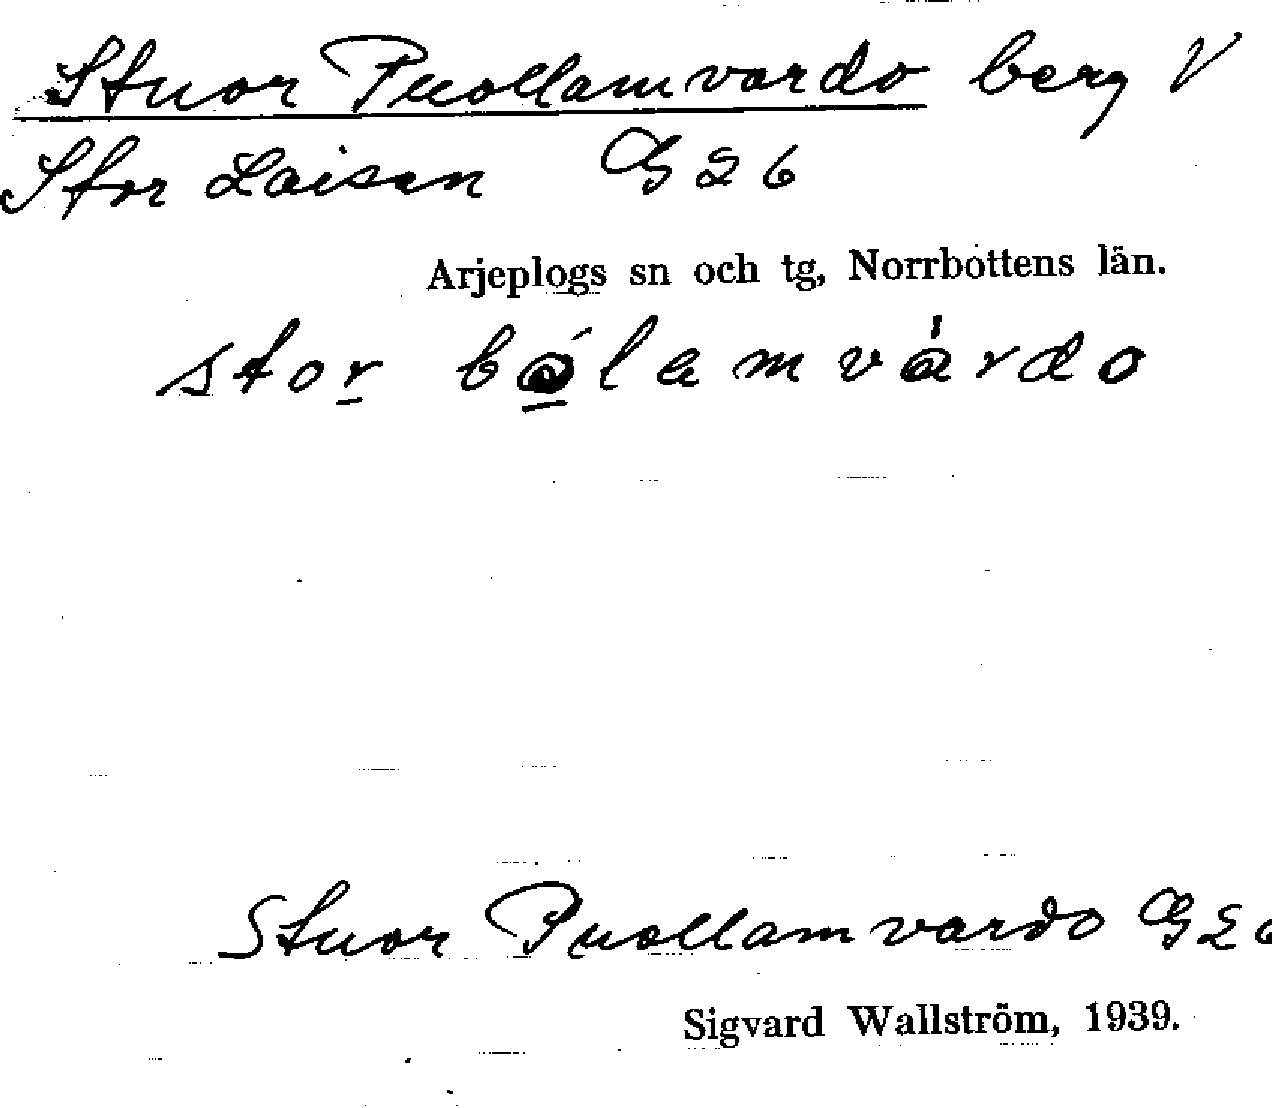 Stuor Puollamvardo berg V
Stor Laisan G 26
Arjeplogs sn och tg, Norrbottens län.
stor bålamvàrdo
Stuor Puollamvardo G 26
Sigvard Wallström, 1939.